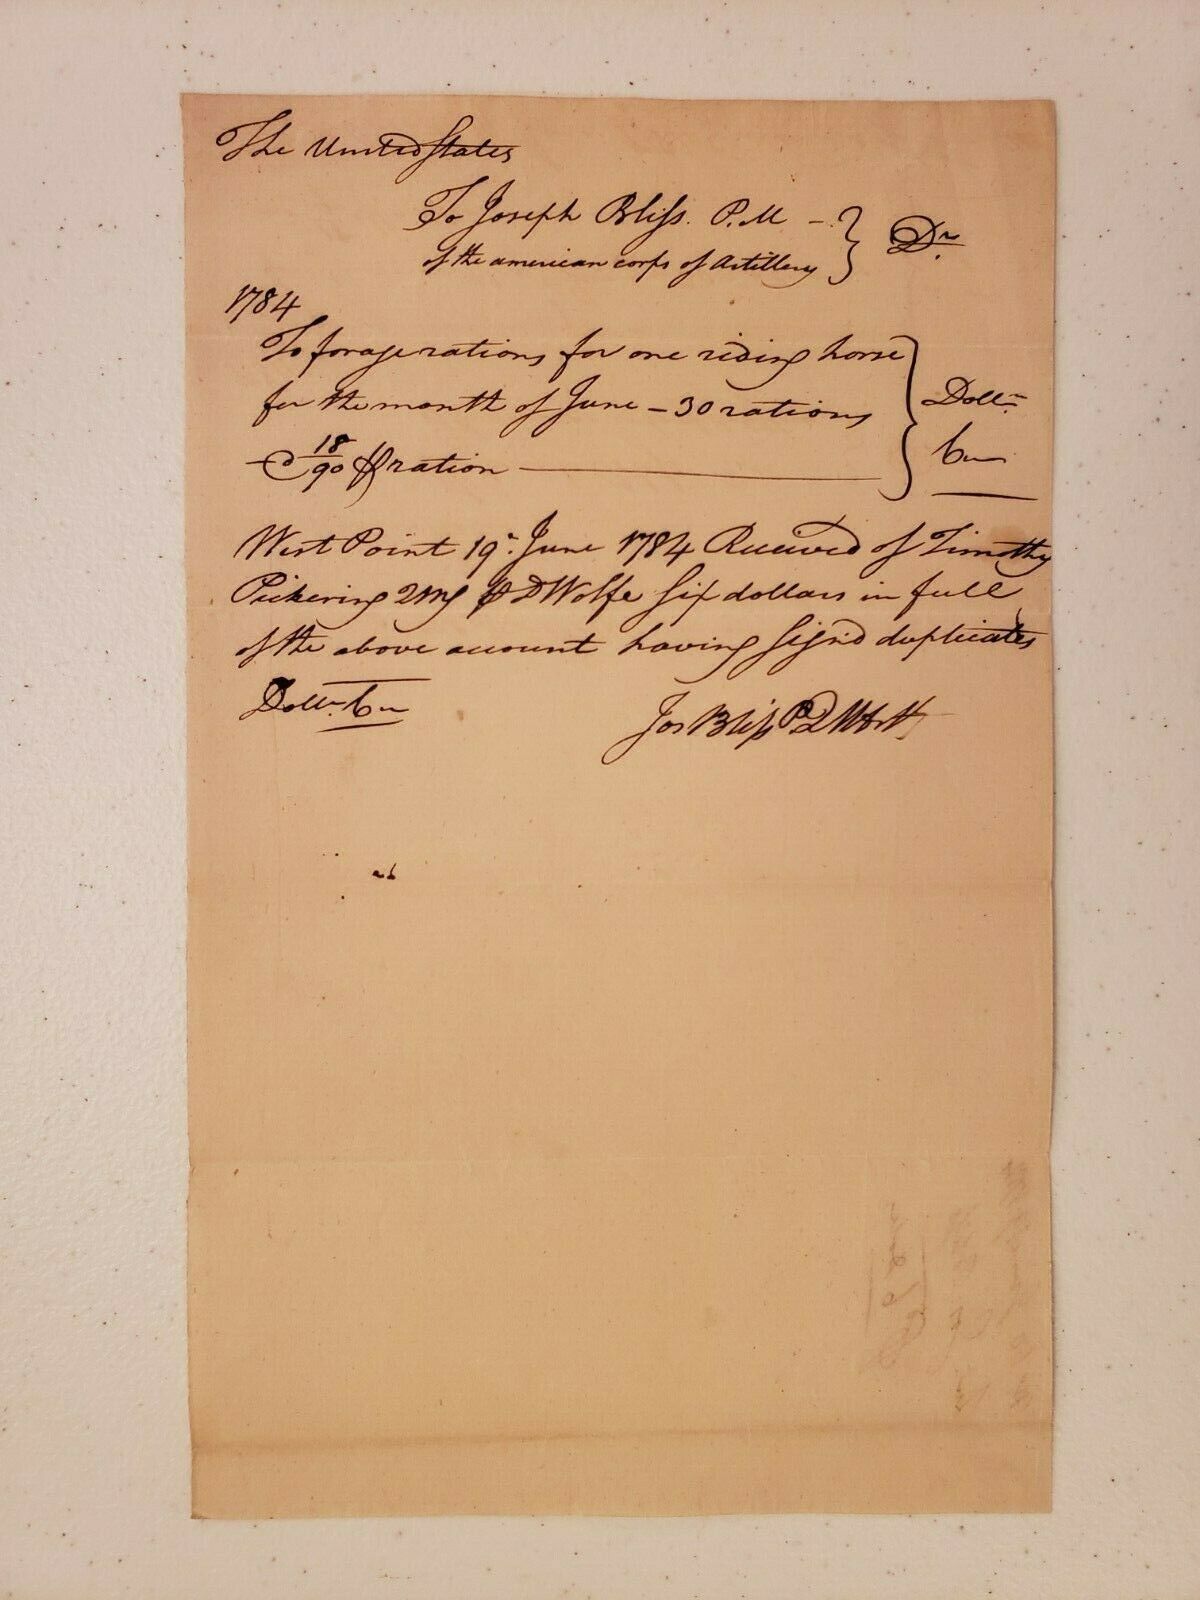 The United States
To Joseph Bliss. P. M -
of the american corps of Artillery
Drs.
1784
To forage rations for one riding horse
for the month of June - 30 rations
@ 18/90 ⅌ ration
Dolls.
6
West Point 19. June 1784 Received of Timothy
Pickering QMG ⅌ D Wolfe Six dollars in full
of the above account having Sign'd duplicates
Dolls. 6
Jos Bliss P